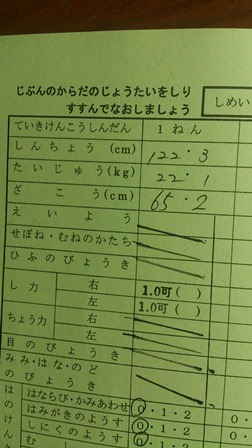 じぶんのからだのじょうたいをしり
すすんでなおしましょう
しめい
ていきけんこうしんだん 1ねん
しんちょう (cm) 122.3
たいじゅう(kg) 22.1
ざこう(cm) 65.2
えいよう
せぼね・むねのかたち
ひふのびょうき
し力 右 1.0可( )
左 1.0可( )
ちょう力 右
左
目のびょうき
みみ・はな・のど
のびょうき
はのけん
はならび・かみあわせ 0・1・2 0・
はみがきのようす 0・1・2 0・
しにくのようす 0・1・2 0・
む